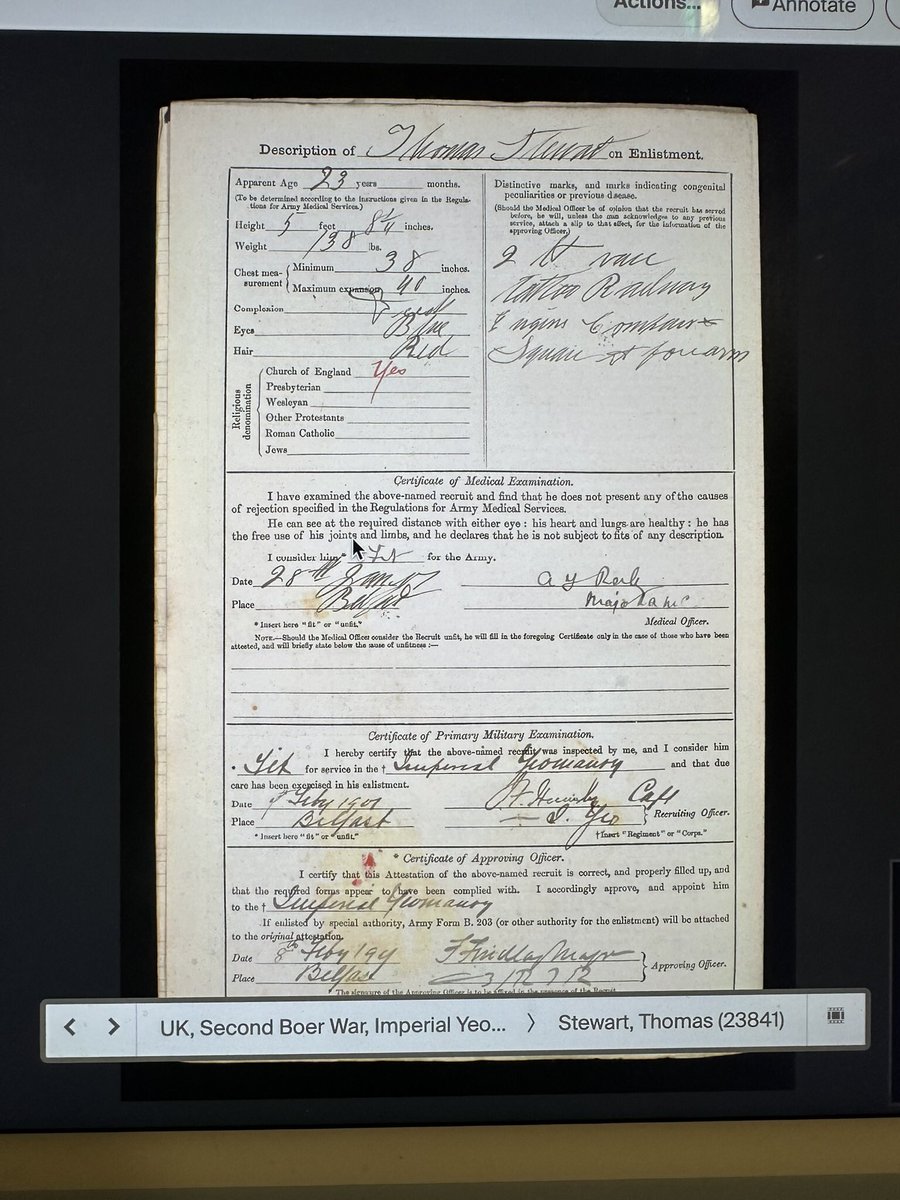 Actions...
Annotate
Description of Thomas Stewart on Enlistment.
Apparent Age 23 years months.
(To be determined according to the instructions given in the Regula-
tions for Army Medical Services.)
Height 5 feet 8¼ inches.
Weight 138 lbs.
Chest mea-
surement
Minimum 38 inches.
Maximum expansion 40 inches.
Complexion
Eyes Blue
Hair Red
Religious
denomination
Church of England Yes
Presbyterian
Wesleyan
Other Protestants
Roman Catholic
Jews
Distinctive marks, and marks indicating congenital
peculiarities or previous disease.
(Should the Medical Officer be of opinion that the recruit has served
before, he will, unless the man acknowledges to any previous
service, attach a slip to that effect, for the information of the
approving Officer.)
2 vacc
Tattoo Railway
Engine Compass &
Square forearm
Certificate of Medical Examination.
I have examined the above-named recruit and find that he does not present any of the causes
of rejection specified in the Regulations for Army Medical Services.
He can see at the required distance with either eye : his heart and lungs are healthy : he has
the free use of his joints and limbs, and he declares that he is not subject to fits of any description.
I consider him * Fit for the Army.
Date 28th
Place Belfast
Major RAMC
Medical Officer.
* Insert here "fit" or "unfit."
NOTE.—Should the Medical Officer consider the Recruit unfit, he will fill in the foregoing Certificate only in the case of those who have been
attested, and will briefly state below the cause of unfitness :—
Certificate of Primary Military Examination.
I hereby certify that the above-named recruit was inspected by me, and I consider him
* Fit for service in the † Imperial Yeomanry and that due
care has been exercised in his enlistment.
Date Feby 1901
Capt
Place Belfast
I. Yeo
Recruiting Officer.
* Insert here "fit" or "unfit."
† Insert "Regiment" or "Corps."
* Certificate of Approving Officer.
I certify that this Attestation of the above-named recruit is correct, and properly filled up, and
that the required forms appear to have been complied with. I accordingly approve, and appoint him
to the † Imperial Yeomanry
If enlisted by special authority, Army Form B. 203 (or other authority for the enlistment) will be attached
to the original attestation.
Date 8th Feby 1901
Findlay Major
Place Belfast
Approving Officer.
* The signature of the Approving Officer is to be affixed in the presence of the Recruit.
UK, Second Boer War, Imperial Yeo...
Stewart, Thomas (23841)